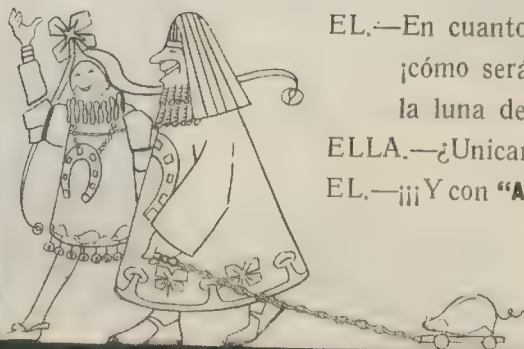 EL.—En cuanto
¡cómo será
la luna de
ELLA.—¿Unicar
EL.—¡¡¡Y con “A